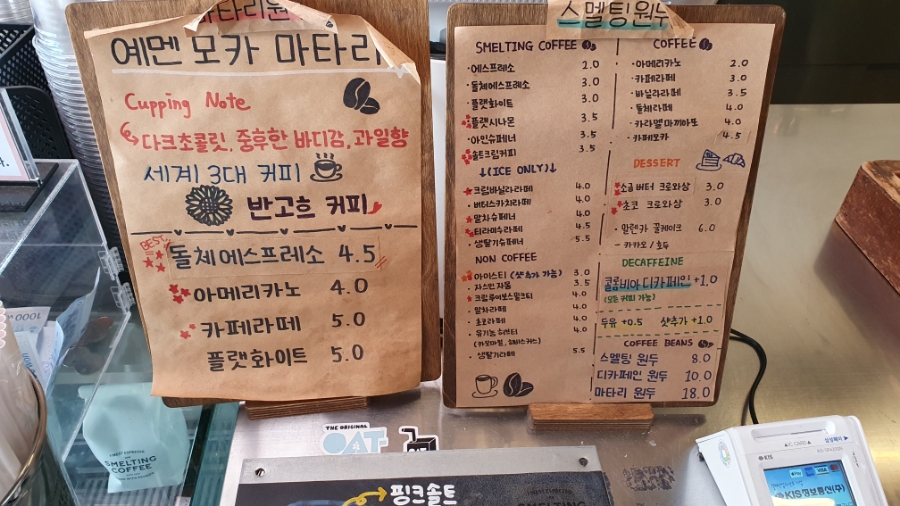 마타리원
예멘 모카 마타리
Cupping Note
다크초콜릿, 중후한 바디감, 과일향
세계 3대 커피
반고흐 커피
BEST
돌체에스프레소 4.5
아메리카노 4.0
카페라떼 5.0
플랫화이트 5.0
스멜팅원두
SMELTING COFFEE
에스프레소 2.0
돌체에스프레소 3.0
플랫화이트 3.0
플랫시나몬 3.5
아인슈페너 3.5
솔트크림커피 3.5
(ICE ONLY)
크림바닐라라떼 4.0
버터스카치라떼 4.0
말차슈페너 4.0
티라미수라떼 4.5
생딸기슈페너 5.5
NON COFFEE
아이스티 (샷추가 가능) 3.0
자스민자몽 3.5
크림루이보스밀크티 4.0
말차라떼 4.0
초코라떼 4.0
유기농 4.0
생딸기라떼 5.5
COFFEE
아메리카노 2.0
카페라떼 3.0
바닐라라떼 3.5
돌체라떼 4.0
카라멜마끼아또 4.0
카페모카 4.5
DESSERT
소금버터 크로와상 3.0
초코 크로와상 3.0
말렌카 꿀케이크 6.0
- 카카오 / 호두
DECAFFEINE
콜롬비아 디카페인 +1.0
(모든 커피 가능)
두유 +0.5 샷추가 +1.0
COFFEE BEANS
스멜팅 원두 8.0
디카페인 원두 10.0
마타리 원두 18.0
THE ORIGINAL
OAT
핑크솔트
SMELTING
COFFEE
IC CARD
삼성페이
KIS
KIS정보통신(주)